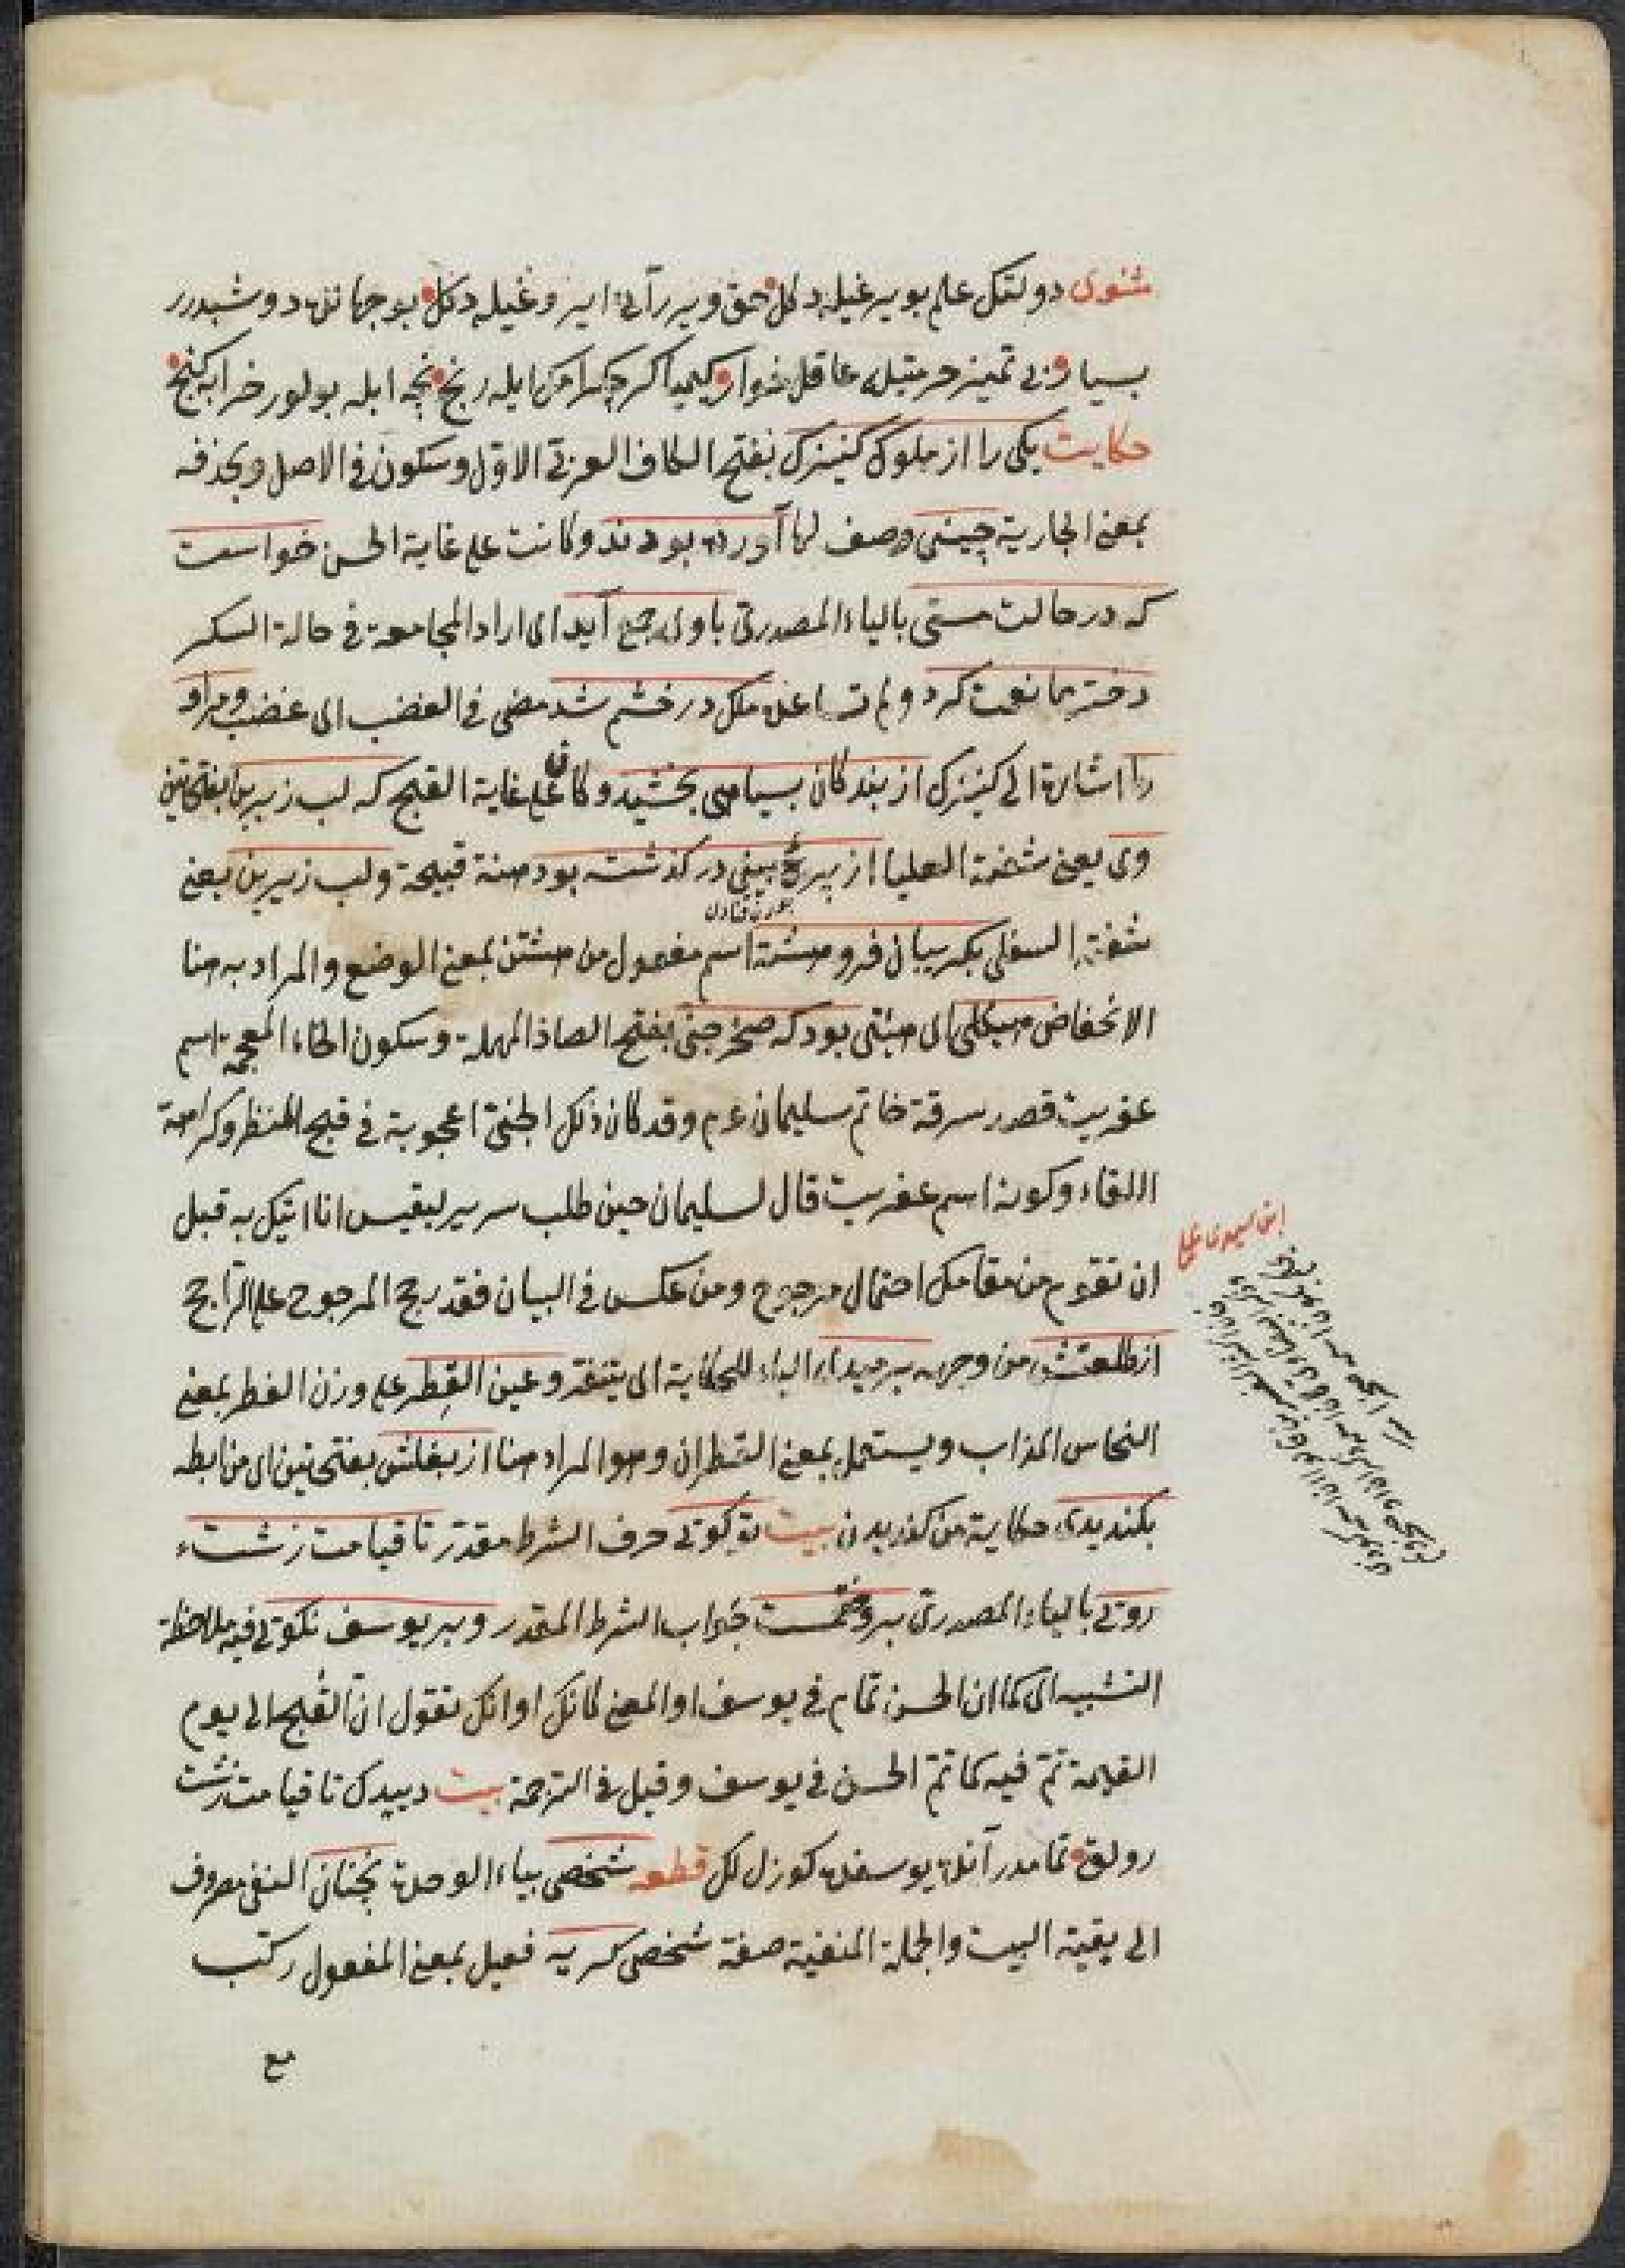 مثنوی دولتك علم بويرغيله دكل حق ويررآنی ايز وغيله دكل بوجهاننه دوشبدرر
بسيار بی تميز حرمتله عاقل خوار كيميا كر چكر امك ايله رنج نجه ابله بولور خرابه كنج
حكايت يكی را از ملوك كنيزك بفتح الكاف العربی الاوّل وسكون فی الاصل وبحذفه
بمعنی الجارية چينی وصف لها آورده بودند وكانت علی غاية الحسن خواست
كه در حالت مستی بالياء المصدری باوی جمع آيد ای اراد المجامعة فی حالة السكر
دختر ممانعت كرد ولم تساعد ملك در خشم شد مضی فی الغضب ای غضب ومر او
را اشارة الی كنيزك از بندكان بسياهی بخشيد وكان علی غاية القبح كه لب زبرين بفتحتين
وی يعنی شفة العليا از پرهٔ بينی در كذشته بود هنة قبيحة ولب زيرين يعنی
شفة السفلی بكريبان فرو هشته اسم مفعول من هشتن بمعنی الوضع والمراد به هنا
الانخفاض هيكلی ای هيئتی بود كه صخر جنی بفتح الصاد المهملة وسكون الخاء المعجمة اسم
عفريت قصد سرقة خاتم سليمان عم وقد كان ذلك الجنی اعجوبة فی قبح المنظر وكراهة
اللقاء وكونه اسم عفريت قال لسليمان حين طلب سرير بلقيس انا اتيك به قبل
ان تقوم من مقامك احتمال مرجوح ومن عكس فی البيان فقد رجح المرجوح علی الرّاجح
از طلعتش من وجهه برميدی الياء للحكاية ای يتنفر وعين القِطر علی وزن الفطر بمعنی
النحاس المذاب ويستعمل بمعنی القطران وهو المراد هنا از بغلش بفتحتين ای من ابطه
بكنديدی حكاية من كنديدن بيت تو كوئی حرف الشرط مقدّر تا قيامت زشت
روئی بالياء المصدری برو ختمست جواب الشرط المقدر وبر يوسف نكوئی فيه ملاحظة
التشبيه ای كما ان الحسن تمام فی يوسف او المعنی كانك او انك تقول ان القبح الی يوم
القيمة تمّ فيه كما تمّ الحسن فی يوسف وقيل فی الترجمة بيت دييدك تا قيامت زشت
رولق تمامدر آنلة يوسفله كوزل لك قطعه شخصی بياء الوحدة نچنان النفی مصروف
الی بقية البيت والجملة المنفية صفة شخصی كريه فعيل بمعنی المفعول ركّب
بمعنی